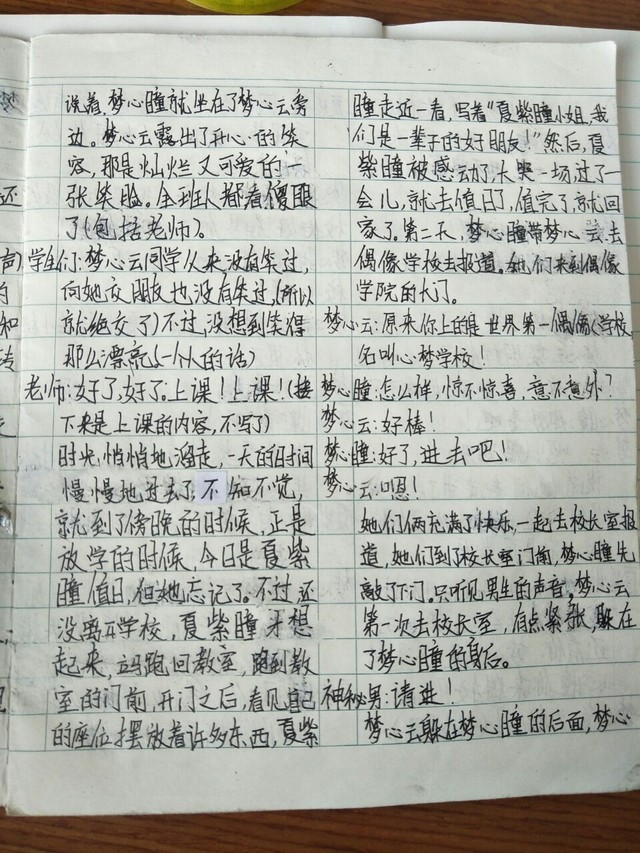 说着，梦心瞳就坐在了梦心云旁
边。梦心云露出了开心的笑
容，那是灿烂又可爱的一
张笑脸。全班人都看傻眼
了(包括老师)。
学生们:梦心云同学从来没有笑过，
向她交朋友也没有笑过，(所以
就绝交了)不过，没想到笑得
那么漂亮(一个人的话)
老师:好了，好了。上课！上课！(接
下来是上课的内容，不写了)
时光悄悄地溜走，一天的时间
慢慢地过去了，不知不觉，
就到了傍晚的时候，正是
放学的时候，今日是夏紫
瞳值日，但她忘记了。不过，还
没离开学校，夏紫瞳才想
起来，立马跑回教室，跑到教
室的门前，开门之后，看见自己
的座位摆放着许多东西，夏紫
瞳走近一看，写着"夏紫瞳小姐，我
们是一辈子的好朋友！"然后，夏
紫瞳被感动了，大哭一场，过了一
会儿，就去值日了，值完了，就回
家了。第二天，梦心瞳带梦心云去
偶像学校去报道。她们来到偶像
学院的大门。
梦心云:原来你上的是世界第一偶像(学校
名叫心梦学校！
梦心瞳:怎么样，惊不惊喜，意不意外？
梦心云:好棒！
梦心瞳:好了，进去吧！
梦心云:嗯！
她们俩充满了快乐，一起去校长室报
道，她们到了校长室门前，梦心瞳先
敲了下门。只听见男生的声音。梦心云
第一次去校长室，有点紧张，躲在
了梦心瞳的身后。
神秘男:请进！
梦心云躲在梦心瞳的后面，梦心